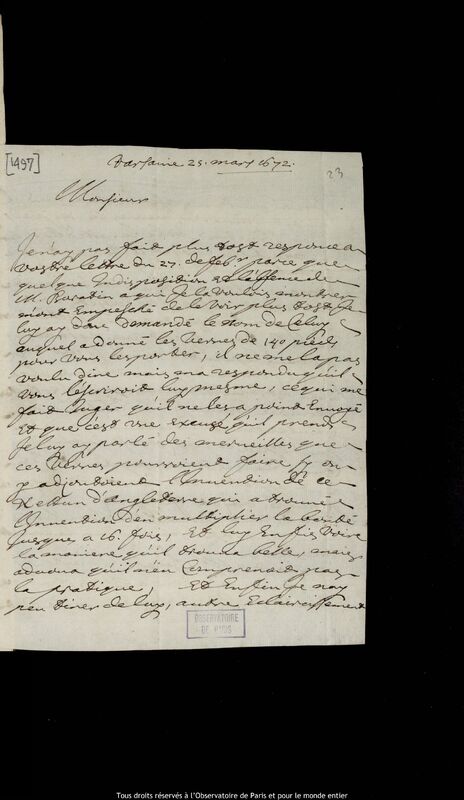 [1497]
Varsavie 25. mars 1672.
23
Monsieur
Je n'ay pas fait plus tost responce a
vostre lettre du 27. de feb.r parce que
quelque Indisposition et l'absence de
M. Buratin a qui Je la voulois monstrer
m'ont Empesché de le voir plus tost Je
luy ay donc demandé le nom de Celuy
auquel a donné les verres de 140 pieds
pour vous les porter, il ne me l'a pas
voulu dire mais m'a respondu qu'il
vous l'escriroit luy mesme, ce qui me
fait Juger qu'il ne les a point Envoyé
Et que c'est une excuse qu'il prend
Je luy ay parlé des merveilles que
ces verres pourroient faire sy on
y adjoutoient l'Invention de ce
d'Angleterre qui a trouvé
l'Invention d'en multiplier la bonté
Jusques a 16. fois, Et luy En fis voir
la maniere qu'il trouva belle, mais
advoua qu'il n'en Comprenoit pas
la pratique. Et Enfin Je n'ay
peu tirer de luy autre Eclaircissement
OBSERVATOIRE
DE PARIS
Tous droits réservés à l'Observatoire de Paris et pour le monde entier